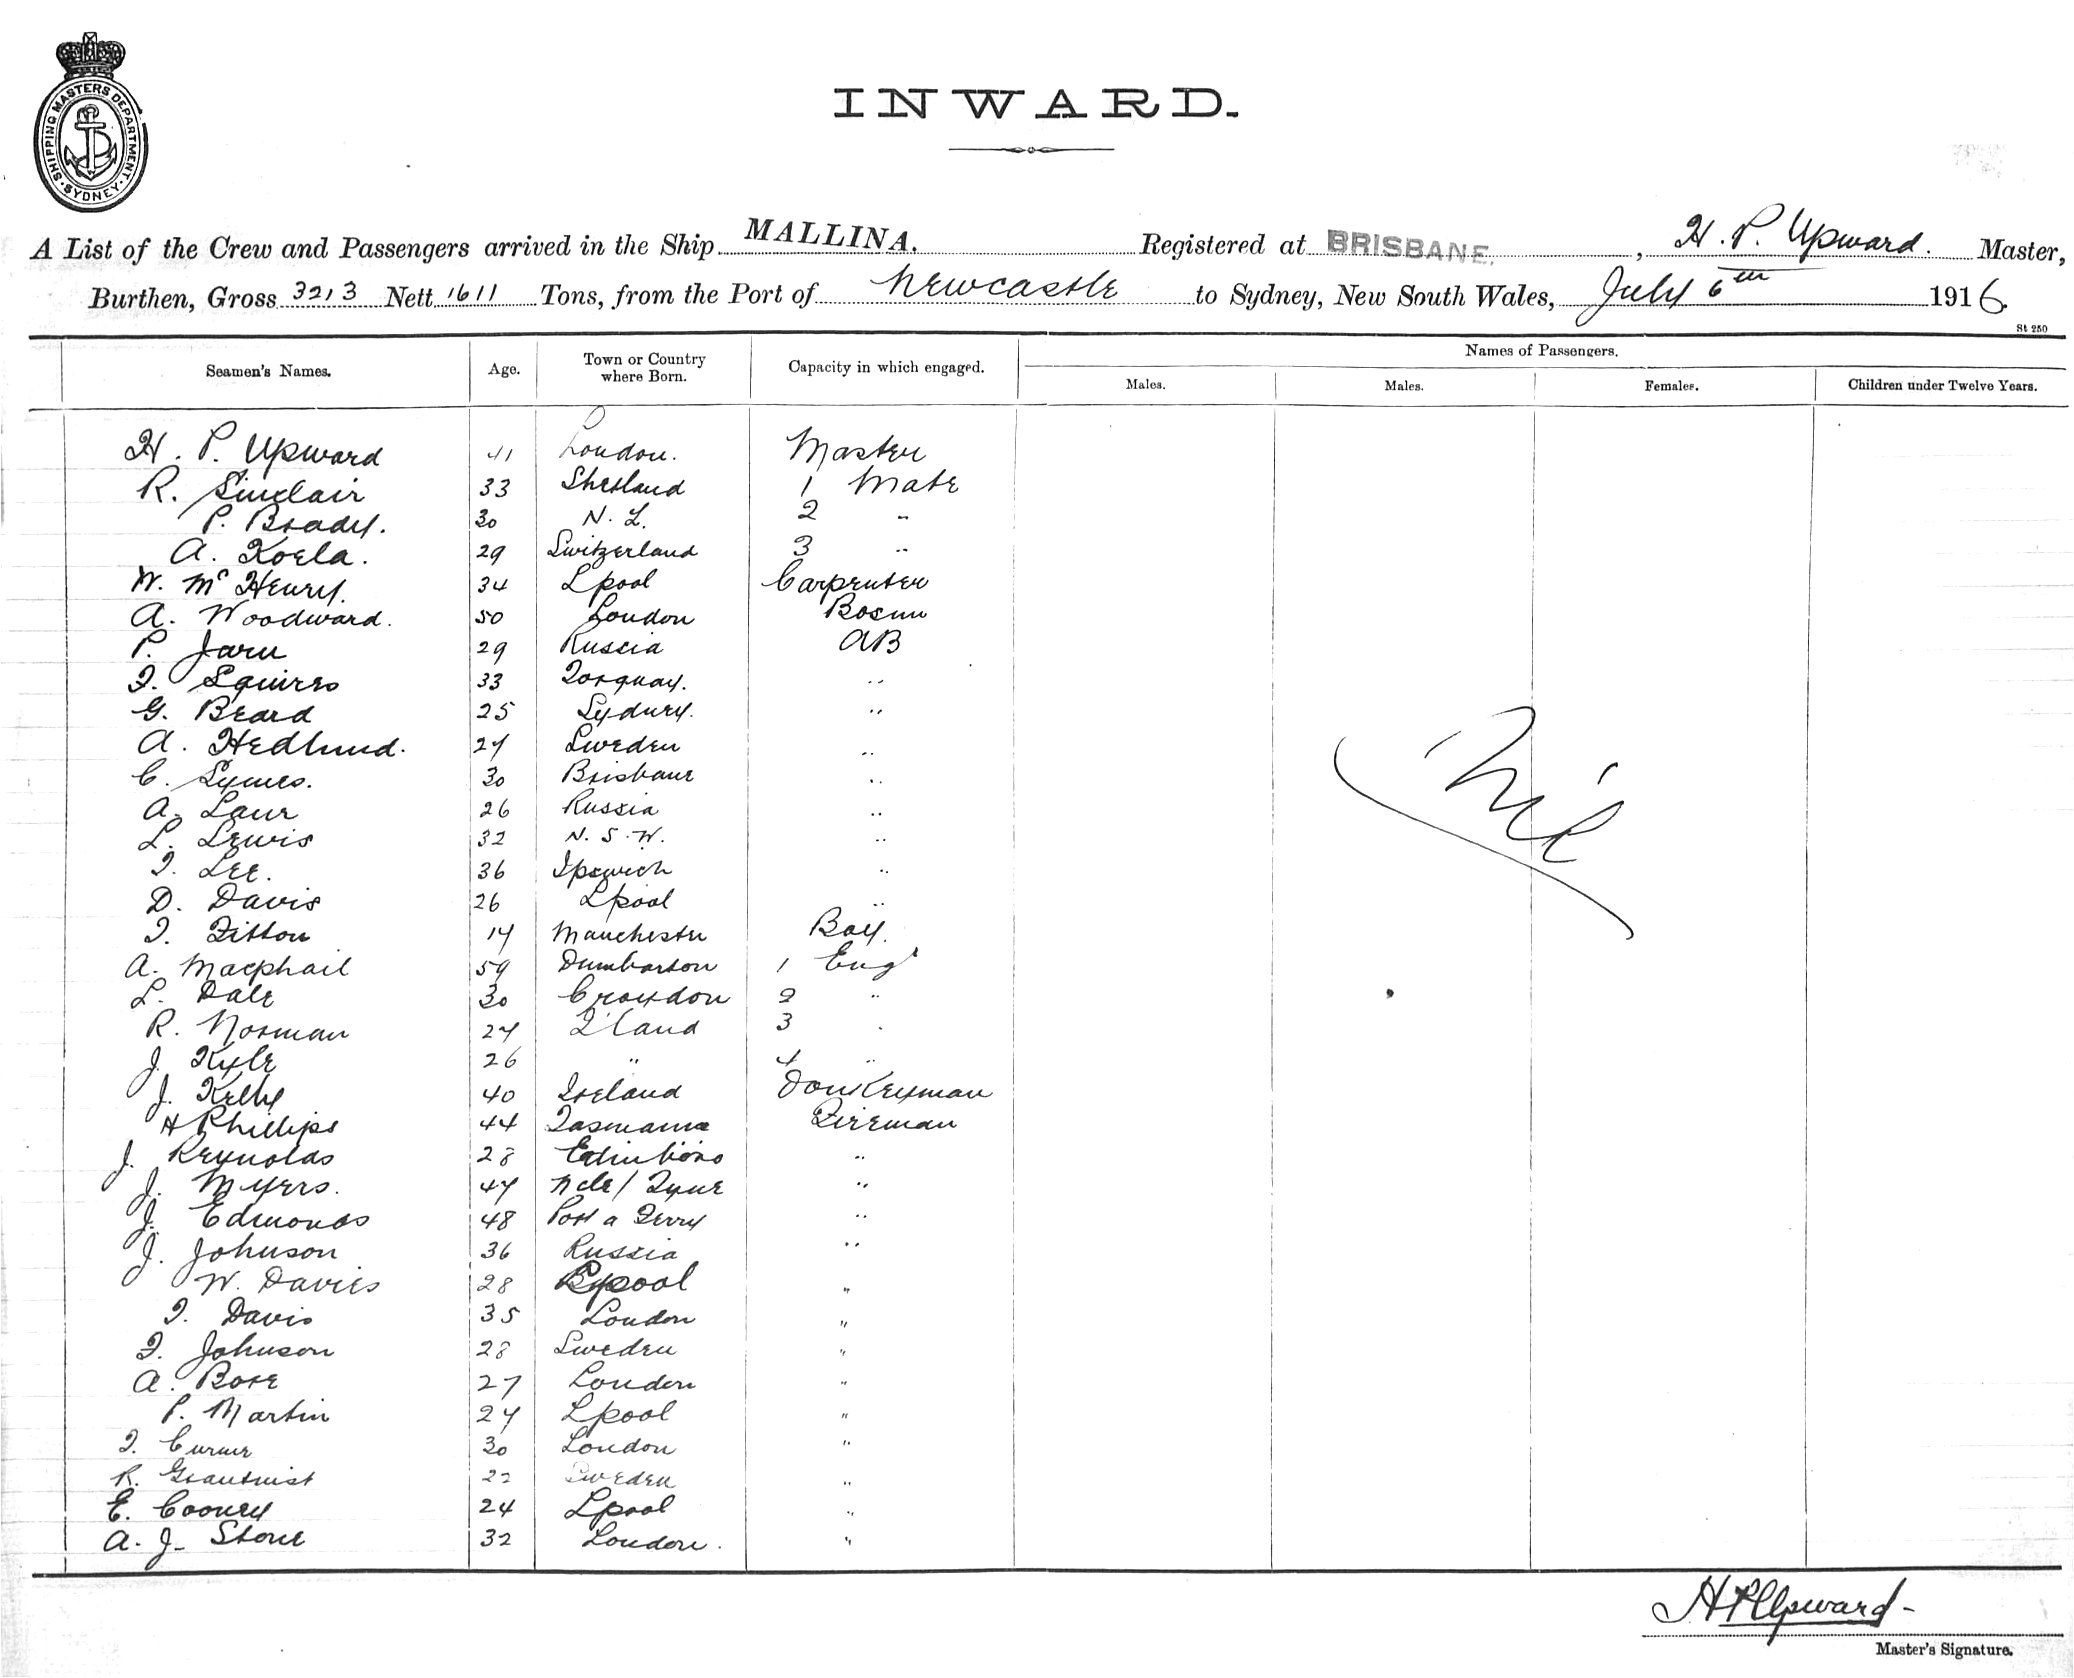 SHIPPING MASTERS DEPARTMENT. SYDNEY
INWARD.
A List of the Crew and Passengers arrived in the Ship MALLINA. Registered at BRISBANE. , H. P. Upward. Master,
Burthen, Gross 3213 Nett 1611 Tons, from the Port of Newcastle to Sydney, New South Wales, July 6th 1916
St 250
Seamen's Names. Age. Town or Country where Born. Capacity in which engaged. Names of Passengers.
Males. Males. Females. Children under Twelve Years.
H. P. Upward 41 London. Master
R. Sinclair 33 Shetland 1 Mate
P. Brady. 30 N. Z. 2 "
A. Koela. 29 Switzerland 3 "
W. McHenry. 34 Lpool Carpenter
A. Woodward. 50 London Bosun
P. Jaru 29 Russia AB
F. Squires 33 Torquay. "
G. Beard 25 Sydney. "
A. Hedlund. 27 Sweden "
C. Symes. 30 Brisbane "
A. Laur 26 Russia "
L. Lewis 32 N. S. W. "
T. Lee. 36 Ipswich "
D. Davis 26 Lpool "
Nil
F. Fitton 17 Manchester Boy.
A. Macphail 59 Dumbarton 1 Engr
L. Dale 30 Croydon 2 "
R. Norman 27 "
3
J. Kyle 26 " 4 "
J. Kelly 40 Ireland Donkeyman
H Phillips 44 Tasmania Fireman
J. Reynolds 28 "
J. Myers. 47 Ncle / Tyne "
J. Edmonds 48 Port a Ferry "
J. Johnson 36 Russia "
W. Davies 28 Lpool "
T. Davis 35 London "
F. Johnson 28 Sweden "
A. Bore 27 London "
P. Martin 27 Lpool "
30 London "
R. 22 Sweden "
E. Cooney 24 Lpool "
A. J. Stone 32 London. "
H P Upward
Master's Signature.